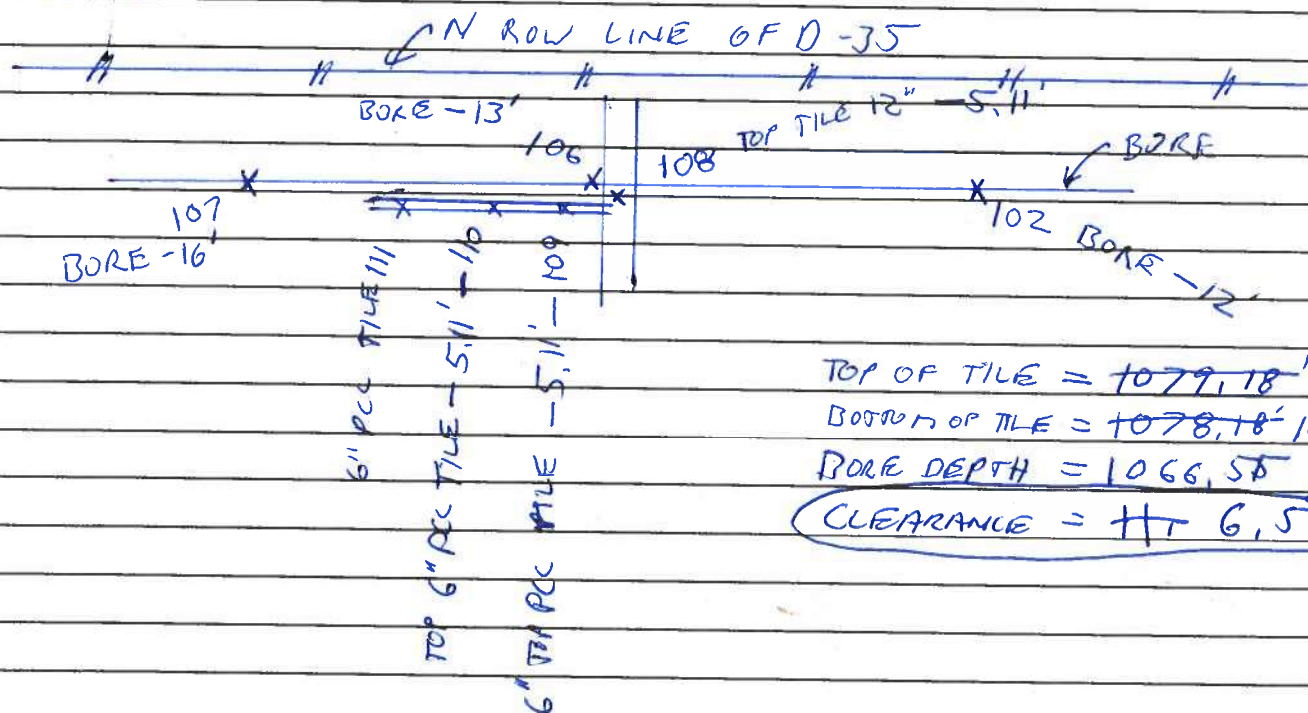 N ROW LINE OF D-35
BORE - 13'
TOP TILE 12" - 5.11'
106
108
BORE
107
102
BORE - 16'
BORE - 12'
6" PCC TILE 111
TOP 6" PCC TILE - 5.11' - 110
6" TOP PCC TILE - 5.11' - 109
TOP OF TILE = 1079.18'
BOTTOM OF TILE = 1078.18'
BORE DEPTH = 1066.55
CLEARANCE = 11. 6.5